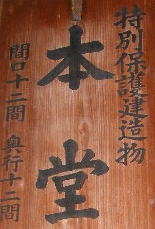 特別保護建造物
本堂
間口十二間 奥行十二間